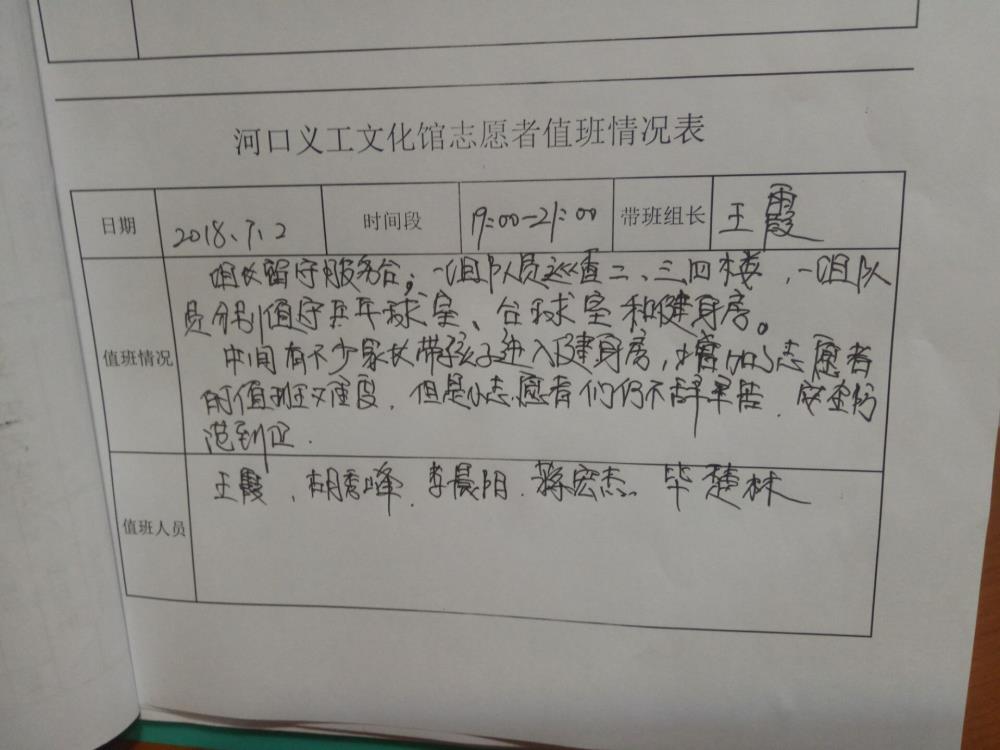 河口义工文化馆志愿者值班情况表
日期 2018.7.2 时间段 19:00-21:00 带班组长 王霞
组长留守服务台;一组队员巡查二、三四楼,一组队
员分别值守乒乓球室、台球室和健身房。
值班情况 中间有不少家长带孩子进入健身房,增加了志愿者
的值班难度.但是小志愿者们仍不辞辛苦.安全防
范到位.
王霞.胡秀峰.李晨阳.蒋宏杰.毕楚林
值班人员